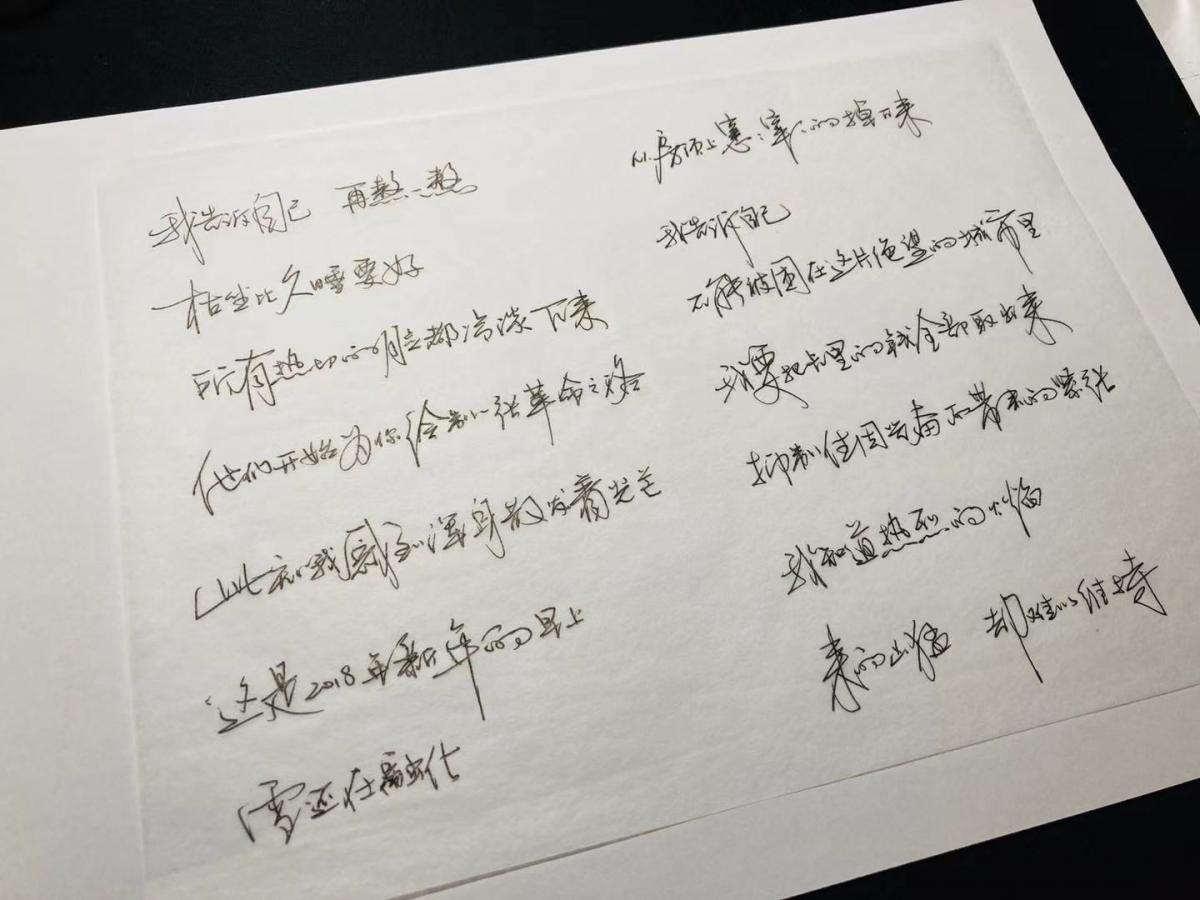 我告诉自己 再熬一熬
枯坐比久睡要好
所有热切的脸都冷淡下来
他们开始为你绘制一张革命之路
此刻我感到浑身散发着光芒
这是2018年新年的早上
雪还在融化
从房顶上窸窸窣窣的掉下来
我告诉自己
不能被困在这片绝望的城市里
我要把卡里的钱全部取出来
抑制住因贫苦而带来的紧张
我知道热烈的火焰
来的凶猛 却难以维持